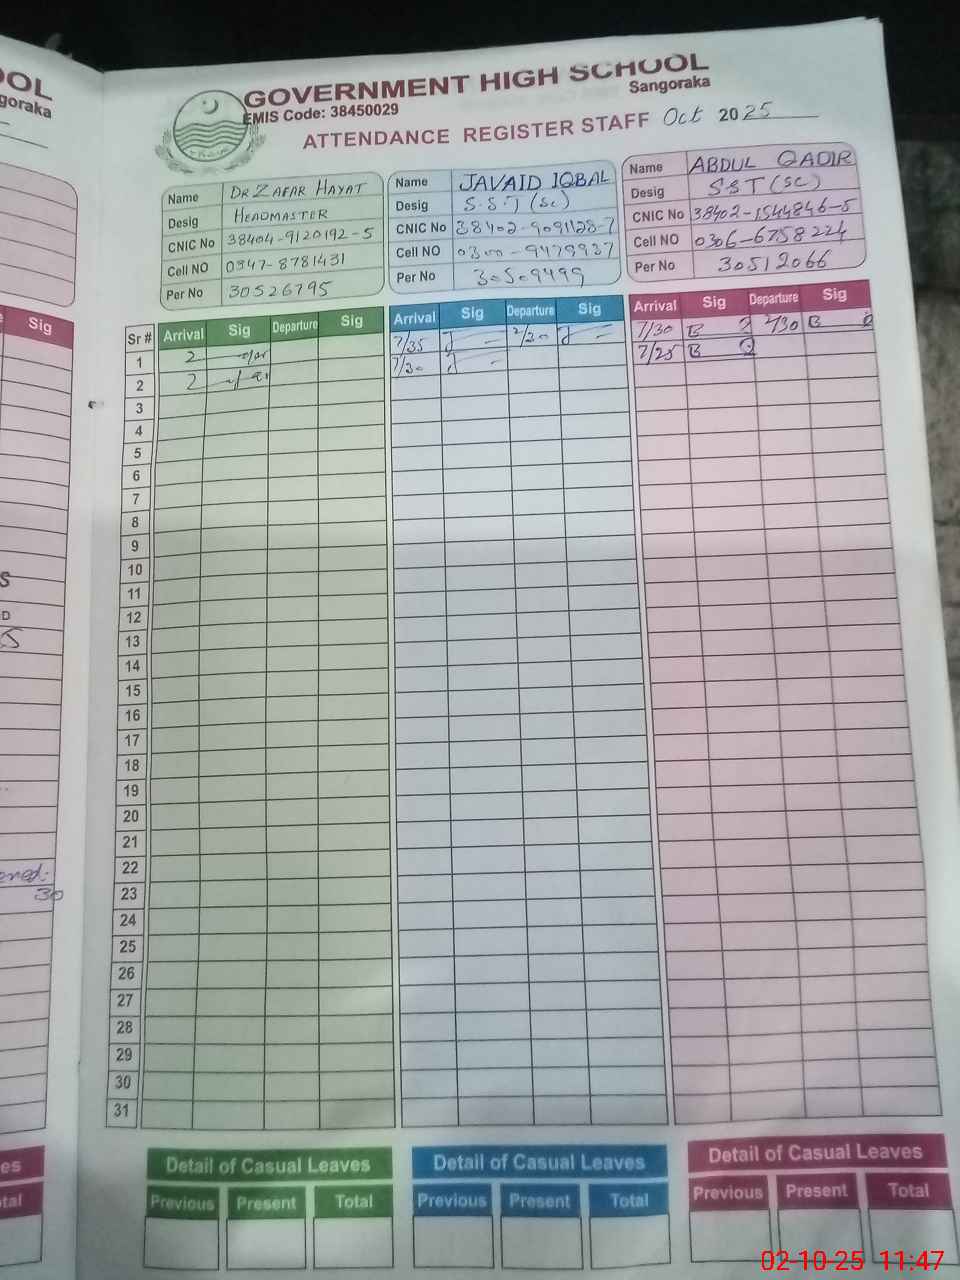 OOL
goraka
GOVERNMENT HIGH SCHOOL
Sangoraka
EMIS Code: 38450029
ATTENDANCE REGISTER STAFF Oct 2025
Name DR ZAFAR HAYAT
Desig HEADMASTER
CNIC No 38404-9120192-5
Cell NO 0347-8781431
Per No 30526795
Name JAVAID IQBAL
Desig S.S.T (Sc)
CNIC No 38402-9091128-7
Cell NO 0300-9479937
Per No 30509499
Name ABDUL QADIR
Desig SST (SC)
CNIC No 38402-1544846-5
Cell NO 0306-6758224
Per No 30512066
Sig
Sr # Arrival Sig Departure Sig Arrival Sig Departure Sig Arrival Sig Departure Sig
1 7/35 2/30 7/30 2/30
2 7/30 7/25
3
4
5
6
7
8
9
10
11
12
13
14
15
16
17
18
19
20
21
22
23
24
25
26
27
28
29
30
31
30
Detail of Casual Leaves Detail of Casual Leaves Detail of Casual Leaves
Previous Present Total Previous Present Total Previous Present Total
es
tal
02-10-25 11:47